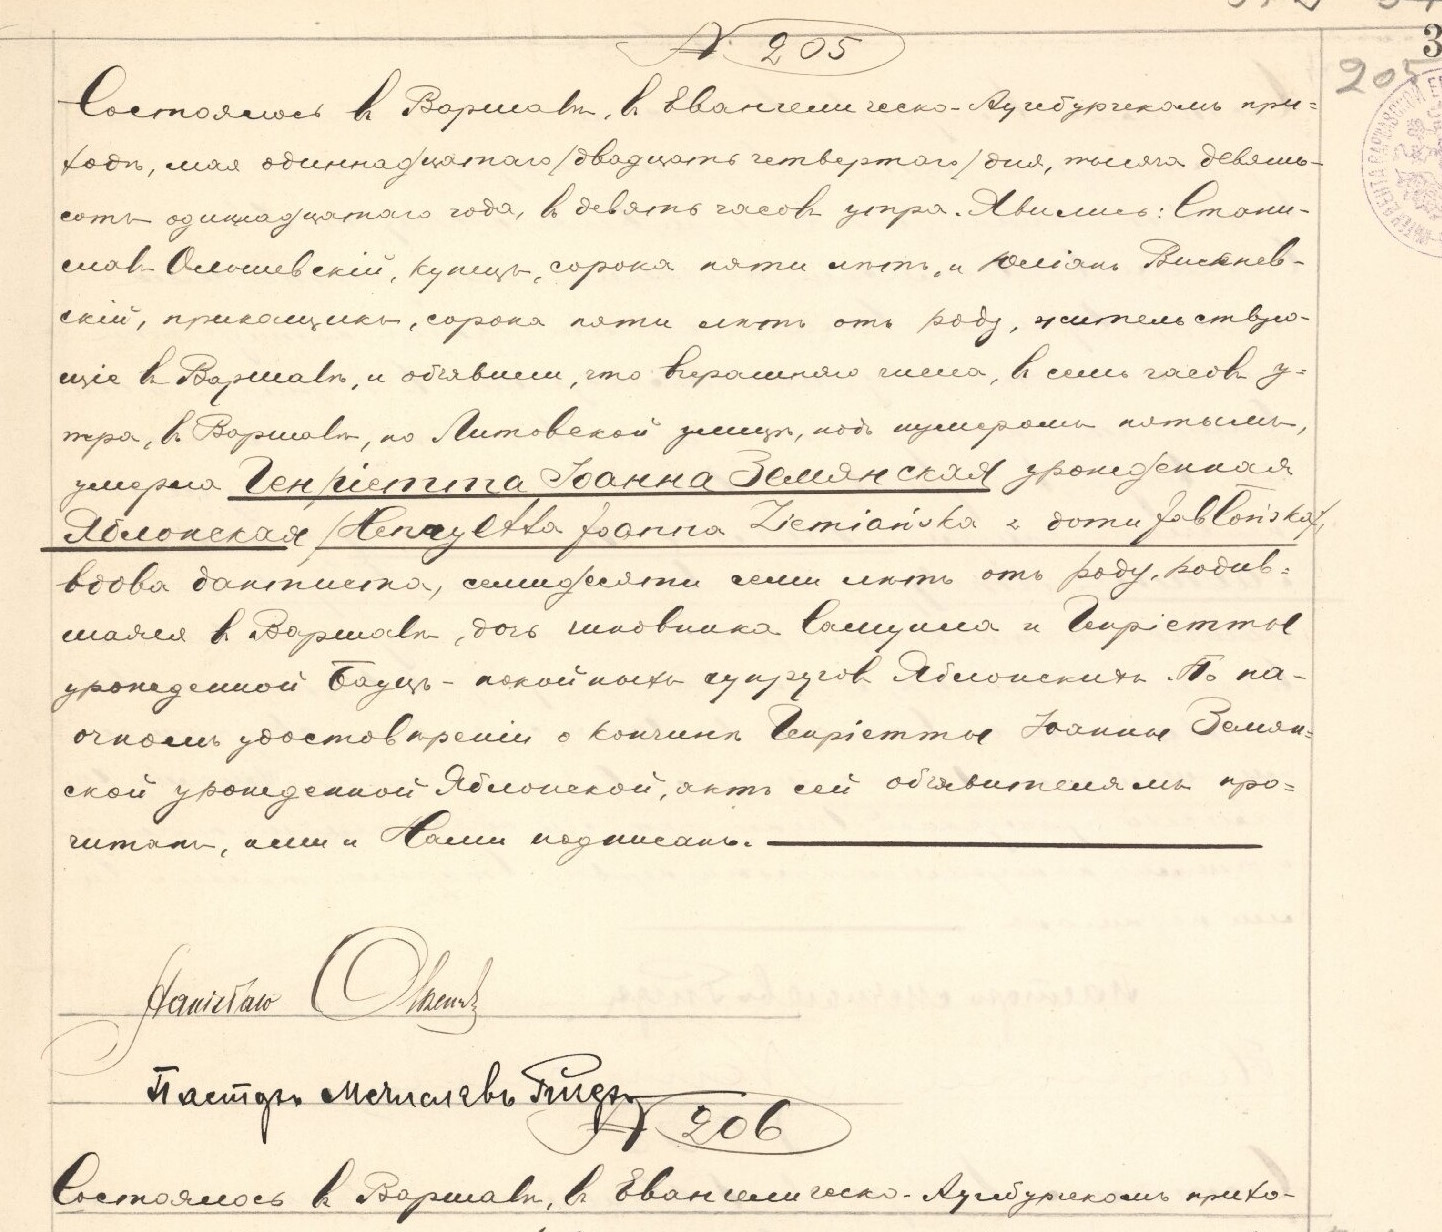 № 205
205
Состоялось въ Варшавѣ, въ Евангелическо-Аугсбургскомъ при-
ходѣ, мая одиннадцатаго /двадцать четвертаго/ дня, тысяча девять-
сотъ одиннадцатаго года, въ девять часовъ утра. Явились: Стани-
славъ Ольшевскій, купецъ, сорока пяти лѣтъ, и Юліанъ Виснев-
скій, прикащикъ, сорока пяти лѣтъ отъ роду, жительствую-
щіе въ Варшавѣ, и объявили, что вчерашняго числа, въ семь часовъ у-
тра, въ Варшавѣ, по Литовской улицѣ, подъ нумеромъ пятымъ,
умерла Генріетта Іоанна Земянская урожденная
Яблонская /Henryetta Joanna Ziemiańska z domu Jabłońska/,
вдова дантиста, семидесяти семи лѣтъ отъ роду, родив-
шаяся въ Варшавѣ, дочь чиновника Самуила и Генріетты
урожденной Бауцъ - покойныхъ супруговъ Яблонскихъ. По на-
очномъ удостовѣреніи о кончинѣ Генріетты Іоанны Земян-
ской урожденной Яблонской, актъ сей объявителямъ про-
читанъ, ими и Нами подписанъ.
Stanisław
Пасторъ Мечиславъ
№ 206
Состоялось въ Варшавѣ, въ Евангелическо-Аугсбургскомъ прихо-